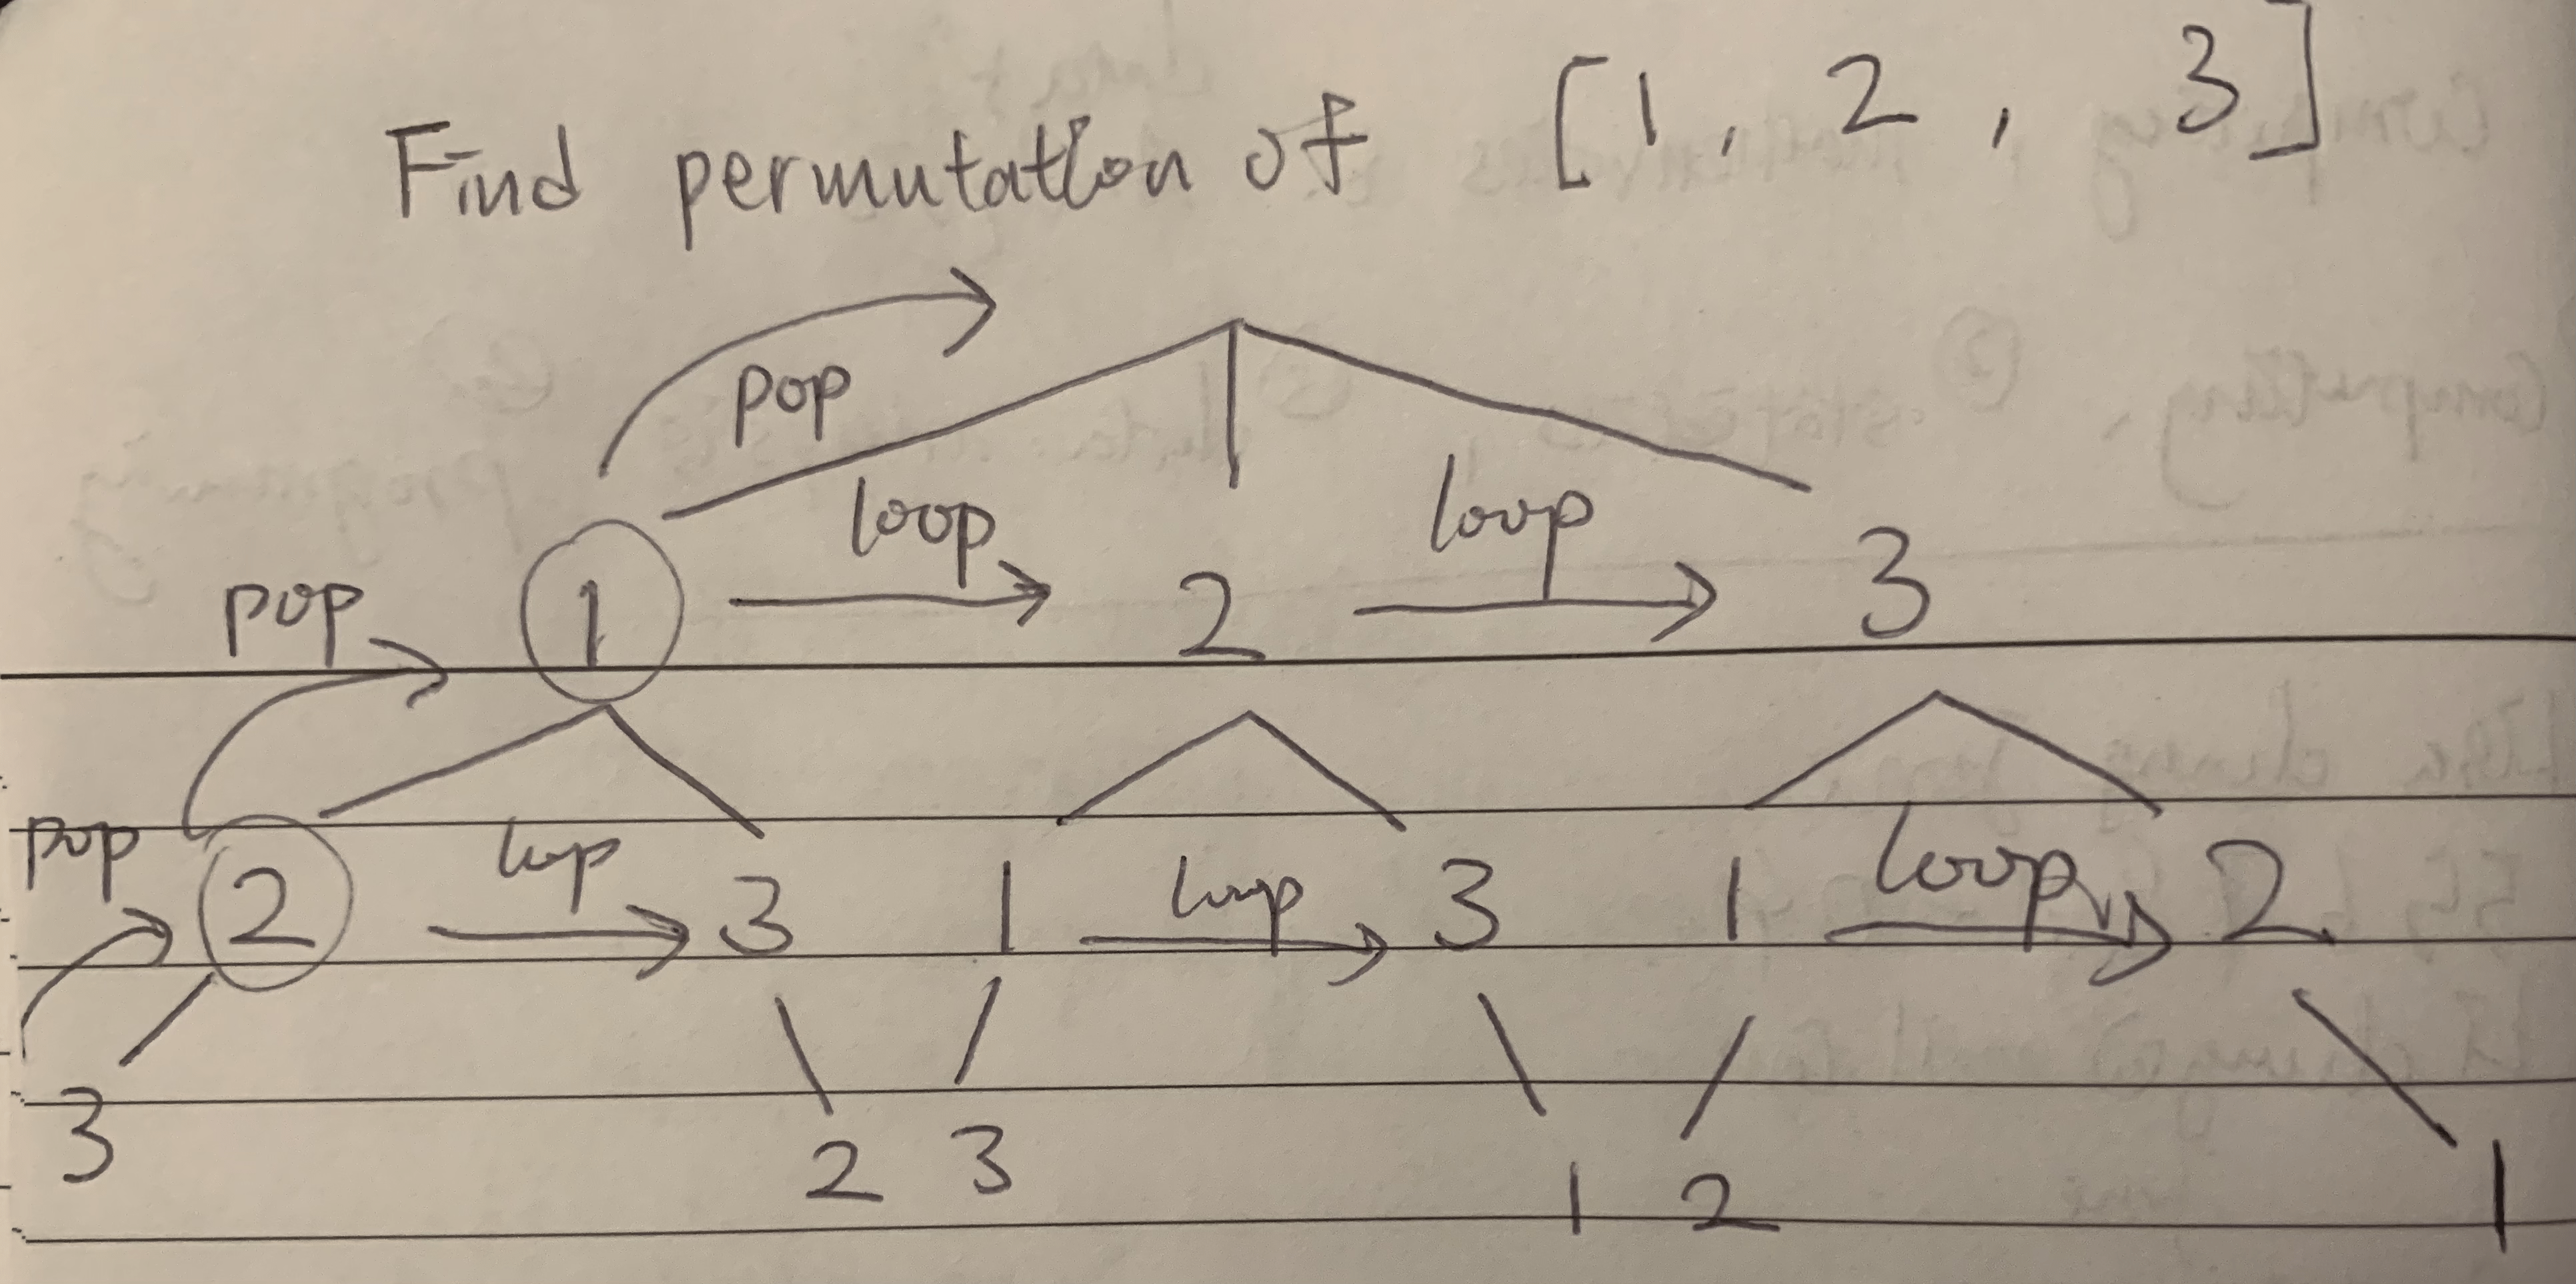 Find permutation of [1, 2, 3]
pop
loop loop
pop 1 2 3
pop 2 loop 3 1 loop 3 1 loop 2
3 2 3 1 2 1